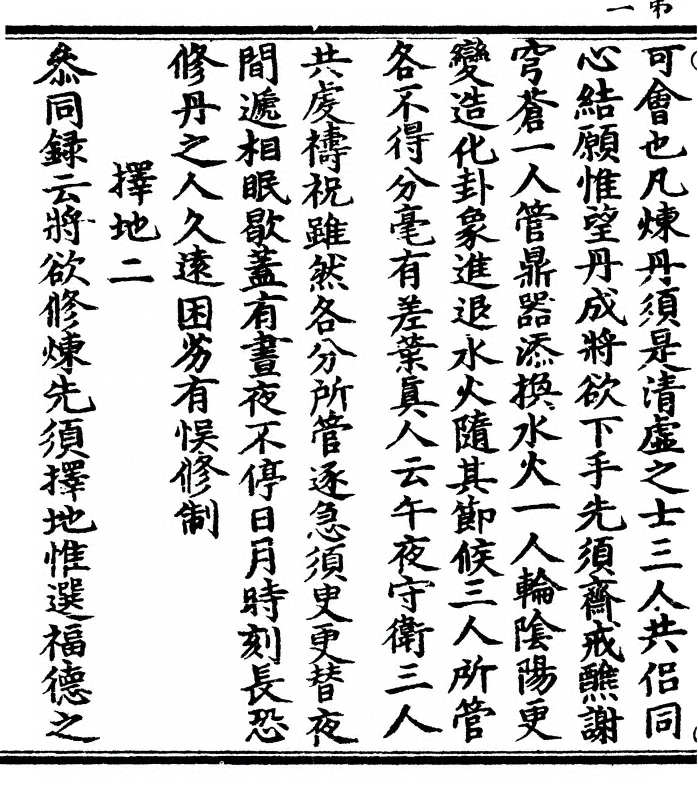 可會也凡煉丹須是清虛之士三人共侶同
心結願惟望丹成將欲下手先須齋戒醮謝
穹蒼一人管鼎器添換水火一人輪陰陽更
變造化卦象進退水火隨其節候三人所管
各不得分毫有差葉真人云午夜守衛三人
共虔禱祝雖然各分所管逐急須臾更替夜
間遞相眠歇蓋有晝夜不停日月時刻長恐
修丹之人久遠困劣有悞修制
擇地二
叅同録云將欲修煉先須擇地惟選福德之